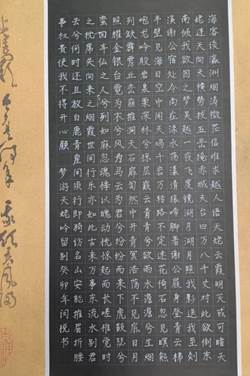 海客谈瀛洲烟涛微茫信难求越人语天姥云霞明灭或可睹天
姥连天向天横势拔五岳掩赤城天台四万八千丈对此欲倒东
南倾我欲因之梦吴越一夜飞度镜湖月湖月照我影送我至剡
溪谢公宿处今尚在渌水荡漾清猿啼脚著谢公屐身登青云梯
半壁见海日空中闻天鸡千岩万转路不定迷花倚石忽已暝熊
咆龙吟殷岩泉栗深林兮惊层巅云青青兮欲雨水澹澹兮生烟
列缺霹雳丘峦崩摧洞天石扉訇然中开青冥浩荡不见底日月
照耀金银台霓为衣兮风为马云之君兮纷纷而来下虎鼓瑟兮
鸾回车仙之人兮列如麻忽魂悸以魄动恍惊起而长嗟惟觉时
之枕席失向来之烟霞世间行乐亦如此古来万事东流水别君
去兮何时还且放白鹿青崖间须行即骑访名山安能摧眉折腰
事权贵使我不得开心颜 梦游天姥吟留别 癸卯年闰悦书